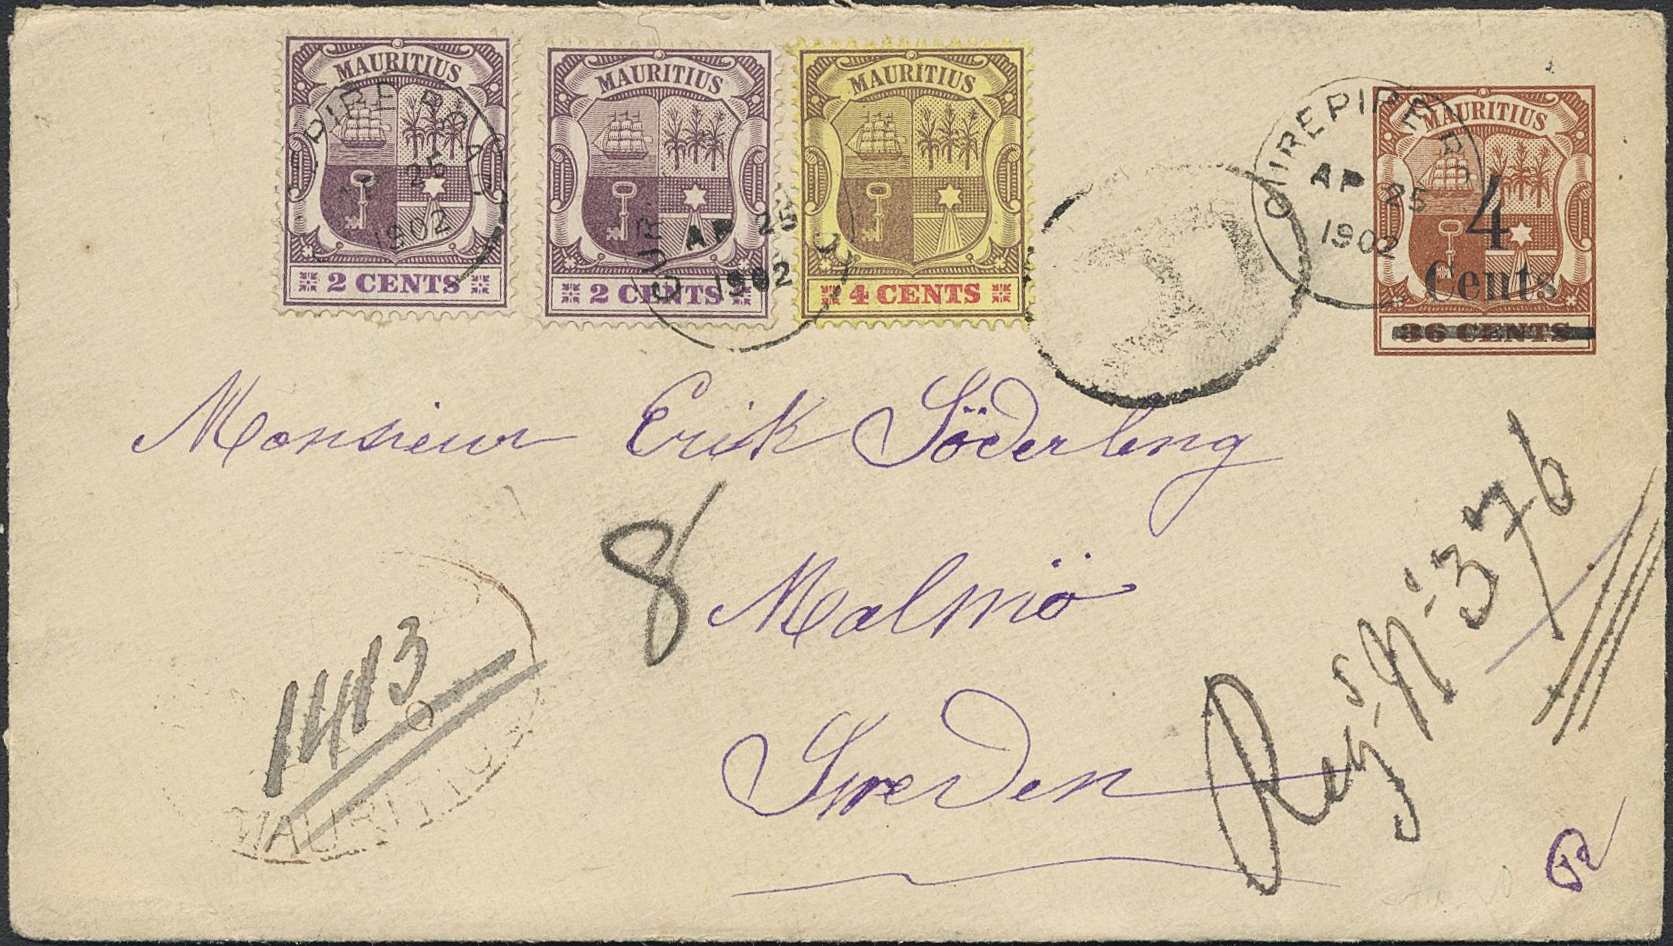 MAURITIUS
2 CENTS
MAURITIUS
2 CENTS
MAURITIUS
4 CENTS
MAURITIUS
4
Cents
36 CENTS
PIPE RO
AP 25
1902
CUR
AP 25
1902
R
CUREPIPE R
AP 25
1902
Monsieur Erik Söderberg
8
Malmö
Sweden
1413
MAURITIUS
Reg's No: 376
R